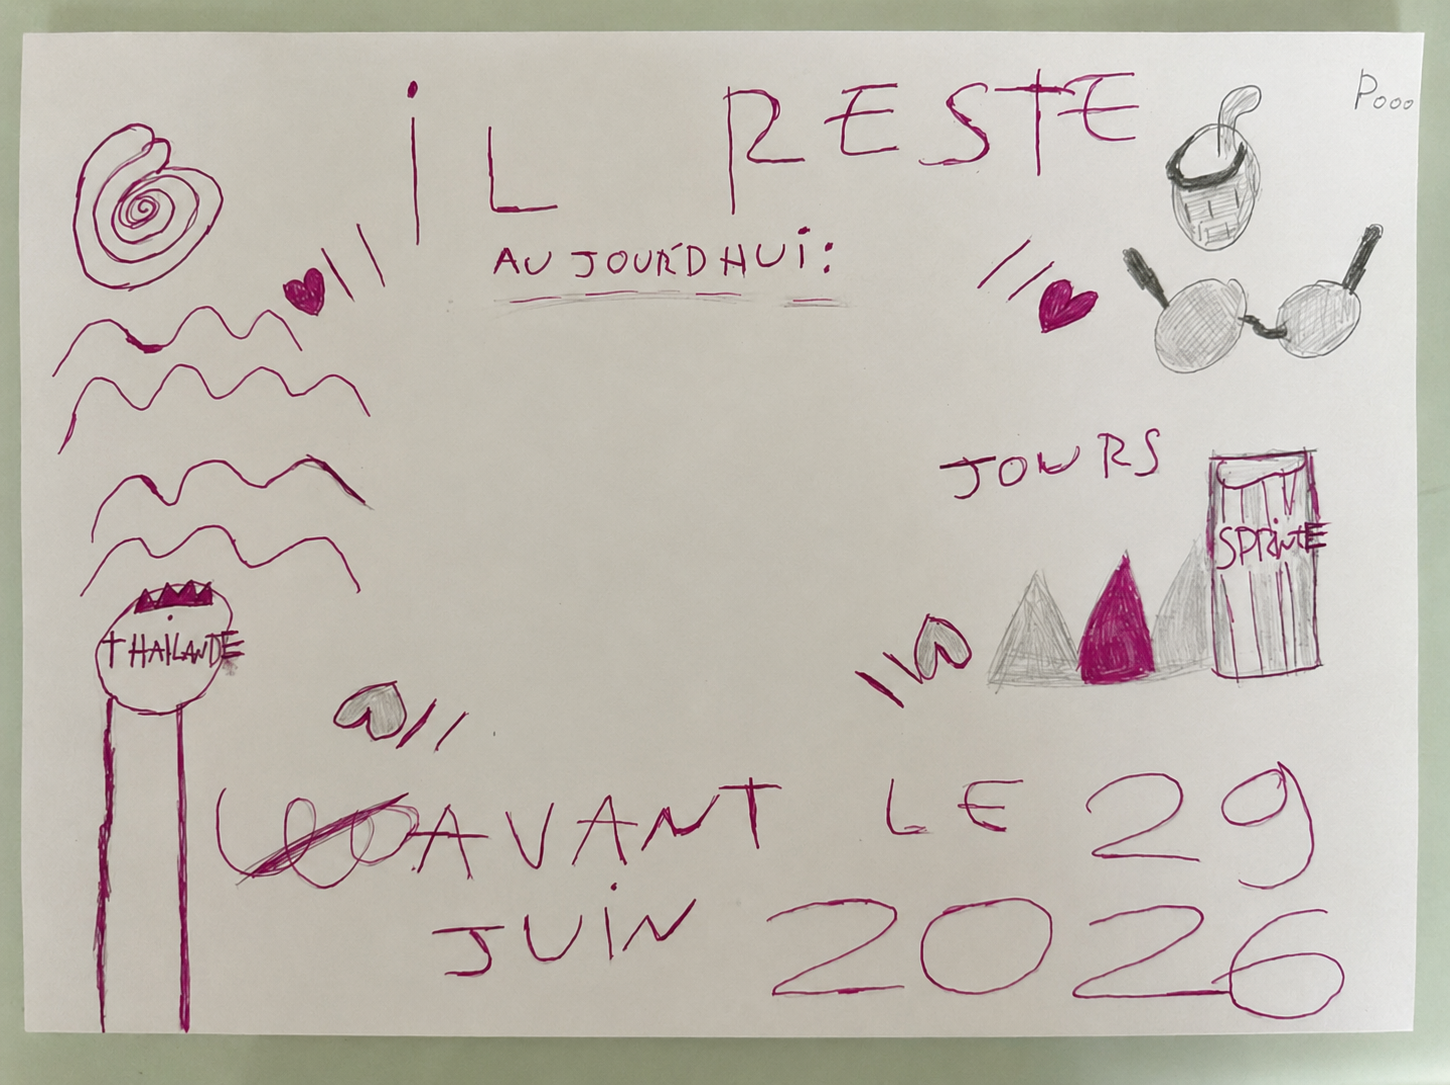 iL RESTE
Pooo
AUJOURD'HUi:
JOURS
SPRiNTE
THAiLANDE
AVANT LE 29
JUiN 2026